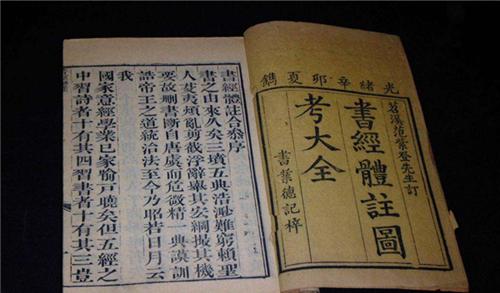 光緒辛卯夏鐫
苕溪范紫登先生訂
書經體註圖
考大全
書業德記梓
書經體註合參序
書之由來久矣三墳五典浩渺難窮賴聖
人芟夷煩亂剪截浮辭舉其宏綱撮其機
要故刪書斷自唐虞而危微精一典謨訓
誥帝王之道統治法至今乃昭若日月云
我
國家意經學業已家愉戶曉矣但五經之
中習詩者十有其四習書者十有其三豈